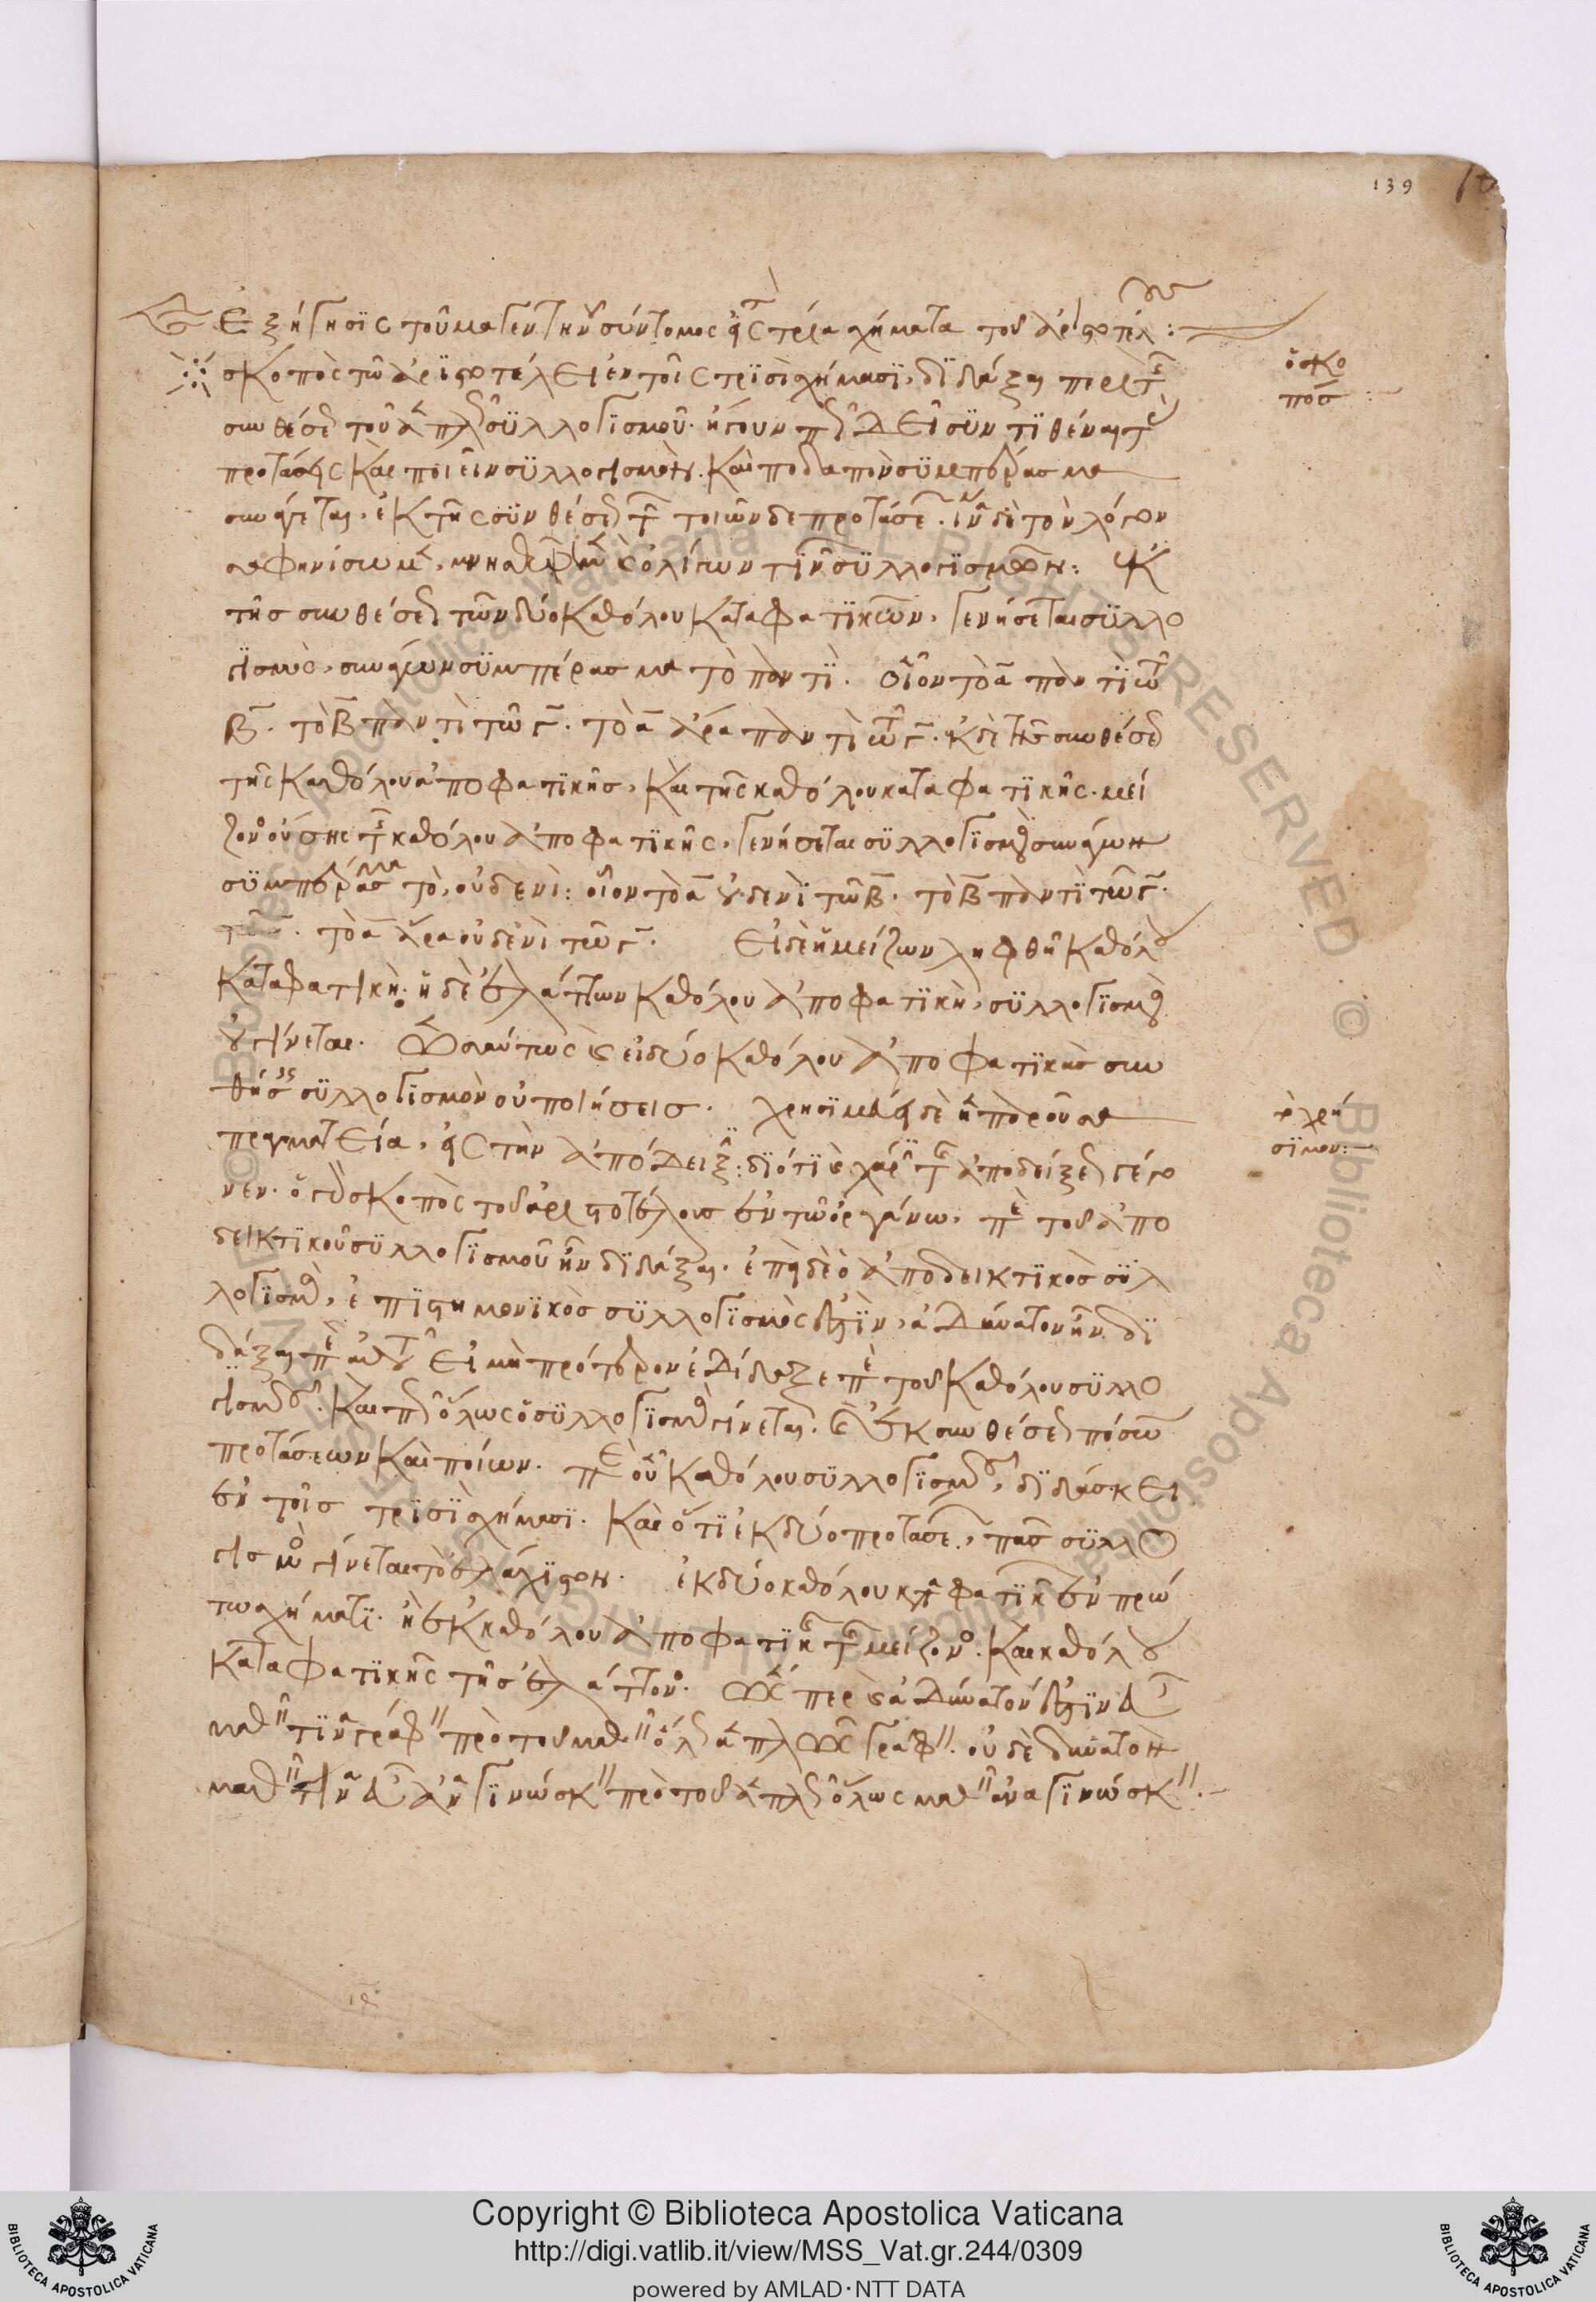 139
Ἐξήγησις τοῦ μαγεντηνοῦ σύντομος εἰς τὰ τρία σχήματα τοῦ ἀριστοτέλους:
ὁ σκο
πός
σκοπὸς τῶ ἀριστοτέλει ἐν τοῖς τρισὶ σχήμασι, διδάξαι περὶ τῆς
συνθέσεως τοῦ ἁπλῶς συλλογισμοῦ. ἤγουν πῶς δεῖ συντιθέναι τὰς
προτάσεις καὶ ποιεῖν συλλογισμὸν. καὶ ποδαπὸν συμπέρασμα
συνάγεται, ἐκ τῆς συνθέσεως τῶν τοιῶνδε προτάσεων. ἵνα δὲ τὸν λόγον
σαφηνίσωμεν, ὀλίγων τινῶν συλλογισμῶν: Ἐκ
τῆς συνθέσεως τῶν δύο καθόλου καταφατικῶν, γενήσεται συλλο
γισμὸς, συνάγων συμπέρασμα τὸ παντὶ. οἷον τὸ α παντὶ τῶ
β. τὸ β παντὶ τῶ γ. τὸ α ἄρα παντὶ τῶ γ. ἐκ δὲ τῆς συνθέσεως
τῆς καθόλου ἀποφατικῆς, καὶ τῆς καθόλου καταφατικῆς. μεί
ζονος οὔσης τῆς καθόλου ἀποφατικῆς, γενήσεται συλλογισμὸς συνάγων
συμπέρασμα τὸ, οὐδενὶ: οἷον τὸ α οὐδενὶ τῶ β. τὸ β παντὶ τῶ γ.
τὸ α ἄρα οὐδενὶ τῶ γ. Εἰ δὲ ἡ μείζων ληφθῆ καθόλου
καταφατικὴ. ἡ δὲ ἐλάττων καθόλου ἀποφατικὴ, συλλογισμὸς
οὐ γίνεται. Ὡσαύτως καὶ εἰ δύο καθόλου ἀποφατικὰς συν
θήσεις συλλογισμὸν οὐ ποιήσεις. χρησιμεύει δὲ ἡ παροῦσα
τὸ χρή
σιμον:
πραγματεία, εἰς τὴν ἀπόδειξιν: διότι καὶ χάριν τῆς ἀποδείξεως γέγο
νεν. ὁ γὰρ σκοπὸς τοῦ ἀριστοτέλους ἐν τῶ ὀργάνω, περὶ τοῦ ἀπο
δεικτικοῦ συλλογισμοῦ ἦν διδάξαι. ἐπεὶ δὲ ὁ ἀποδεικτικὸς συλ
λογισμὸς, ἐπιστημονικὸς συλλογισμὸς ἐστὶν, ἀδύνατον ἦν δι
δάξαι περὶ αὐτοῦ εἰ μὴ πρότερον ἐδίδαξε περὶ τοῦ καθόλου συλλο
γισμοῦ. καὶ πῶς ὅλως ὁ συλλογισμὸς γίνεται. καὶ ἐκ συνθέσεως πόσων
προτάσεων καὶ ποίων. περὶ οὖν καθόλου συλλογισμοῦ, διδάσκει
ἐν τοῖς τρισὶ σχήμασι. καὶ ὅτι ἐκ δύο προτάσεων, πᾶς συλλο
γισμὸς γίνεται τὸ ἐλάχιστον. ἐκ δύο καθόλου καταφατικῶν ἐν πρώ
τω σχήματι. ἢ ἐκ καθόλου ἀποφατικῆς τῆς μείζονος. καὶ καθόλου
καταφατικῆς τῆς ἐλάττονος. Ὥσπερ καὶ ἀδύνατόν ἐστιν
μαθεῖν τινὰ γράφειν πρὸ τοῦ μαθεῖν ὅλως ἁπλῶς γράφειν. οὐδὲ δυνατὸν
μαθεῖν τινὰ ἀναγινώσκειν πρὸ τοῦ ἁπλῶς ὅλως μαθεῖν ἀναγινώσκειν.
Copyright © Biblioteca Apostolica Vaticana
http://digi.vatlib.it/view/MSS_Vat.gr.244/0309
powered by AMLAD·NTT DATA